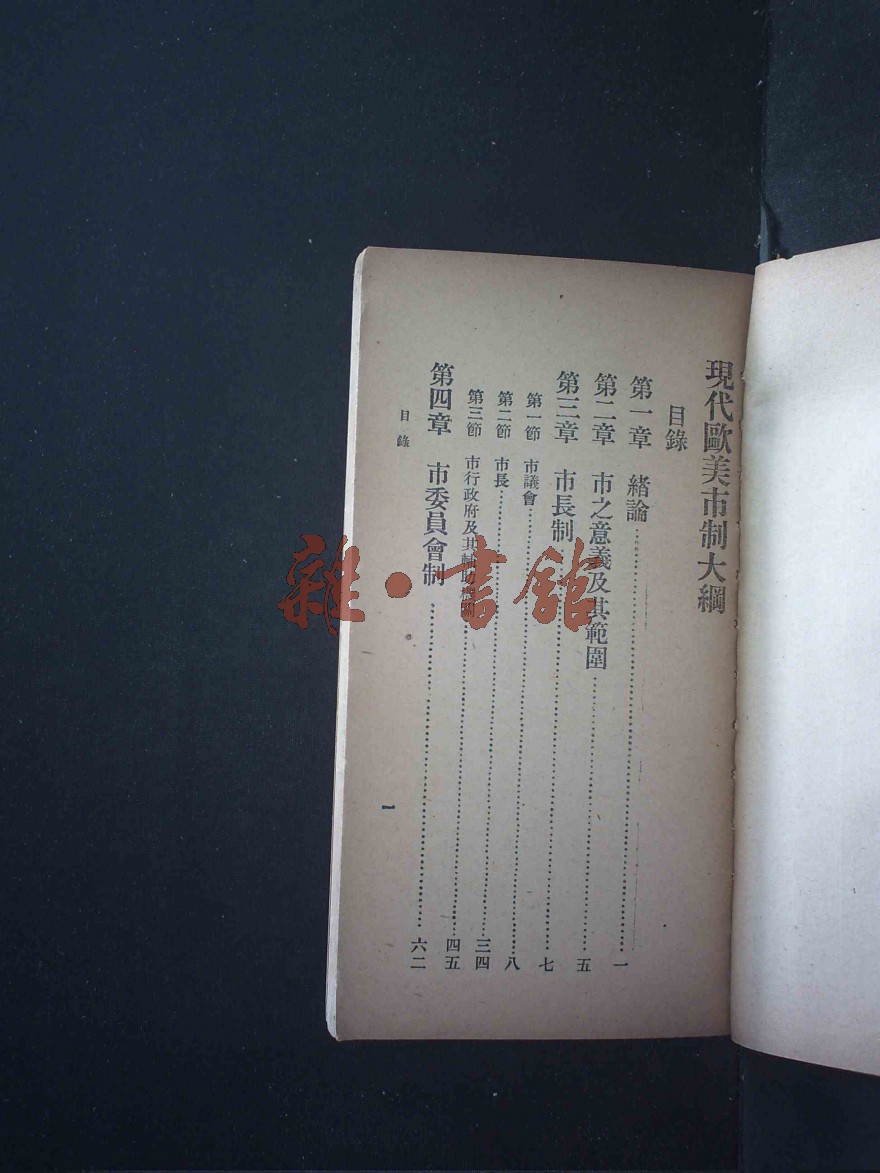 現代歐美市制大綱
目錄
第一章 緒論⋯⋯一
第二章 市之意義及其範圍⋯⋯五
第三章 市長制⋯⋯七
第一節 市議會⋯⋯八
第二節 市長⋯⋯三四
第三節 市行政府及其輔助機關⋯⋯四五
第四章 市委員會制⋯⋯六二
目錄
一
雜·書館